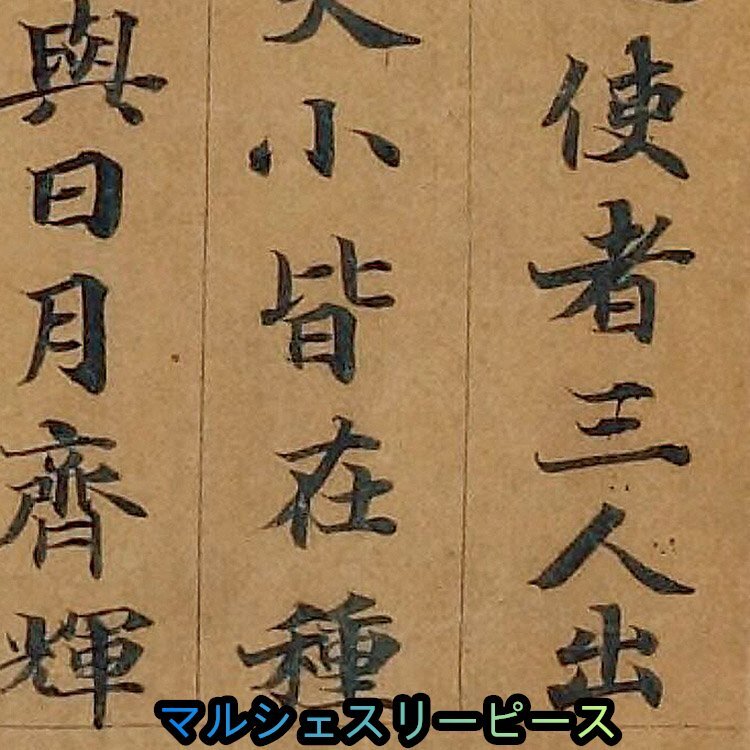 使者三人出
大小皆在種
與日月齊輝
マルシェスリーピース